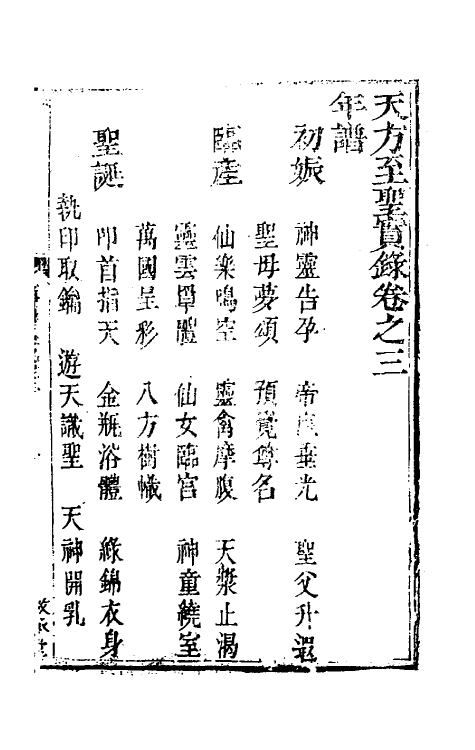 天方至聖實錄卷之三
年譜
初娠 神靈告孕 帝真垂光 聖父升遐
聖母夢頌 預覺尊名
臨產 仙樂鳴空 靈禽摩腹 天漿止渴
靈雲罩體 仙女臨宮 神童繞室
萬國呈彩 八方樹幟
聖誕 叩首指天 金瓶浴體 綠錦衣身
執印取鑰 遊天識聖 天神開乳